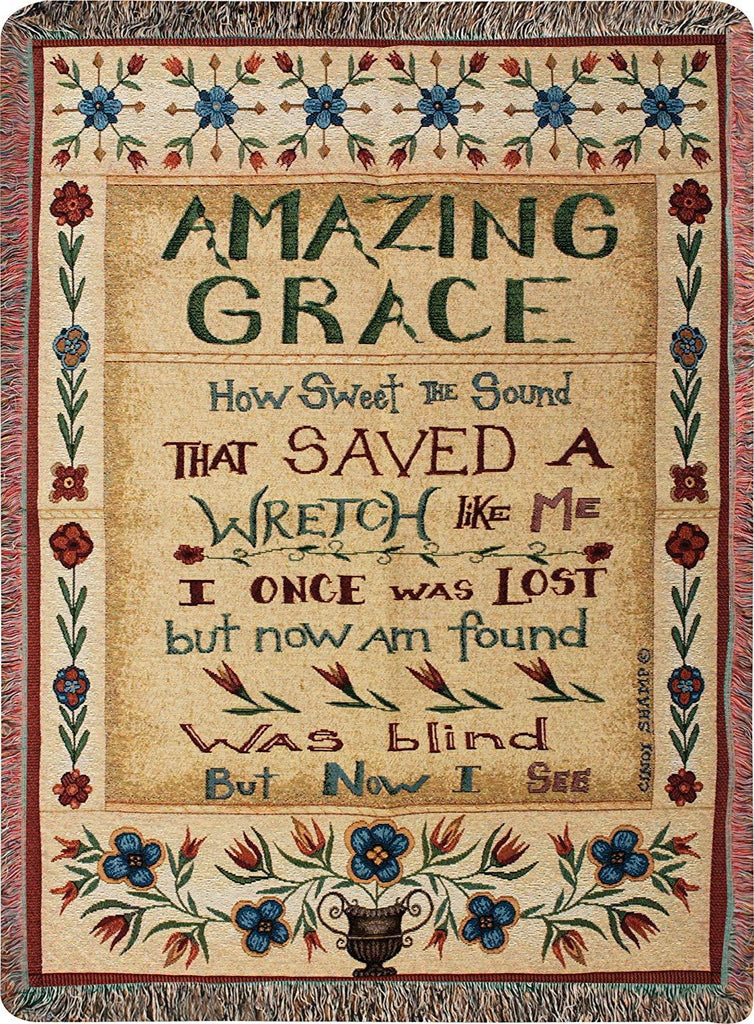 AMAZING
GRACE
How Sweet THE Sound
THAT SAVED A
WRETCH liKE ME
I ONCE WAS LOST
but now am found
WAS blind
But Now I SEE
CINDY SHAMP ©